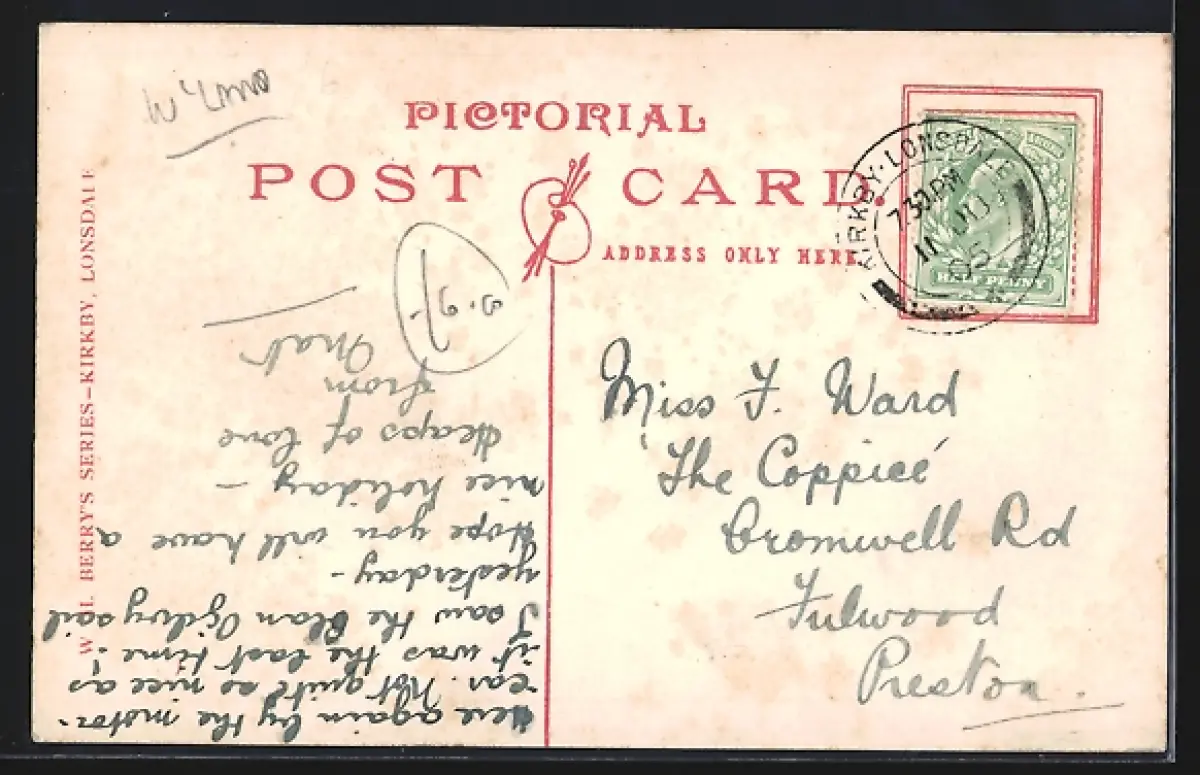 PICTORIAL
POST CARD.
ADDRESS ONLY HERE.
KIRKBY·LONSDALE
7.30 PM
11 JU
05
HALF PENNY
W. H. BERRY'S SERIES-KIRKBY, LONSDALE
Miss F. Ward
'The Coppice'
Cromwell Rd
Fulwood
Preston.
Here again by the motor-
car. Not quite as nice as
it was the last time!
I saw the Clan Ogilvy sail
yesterday -
Hope you will have a
nice holiday -
Heaps of love
from